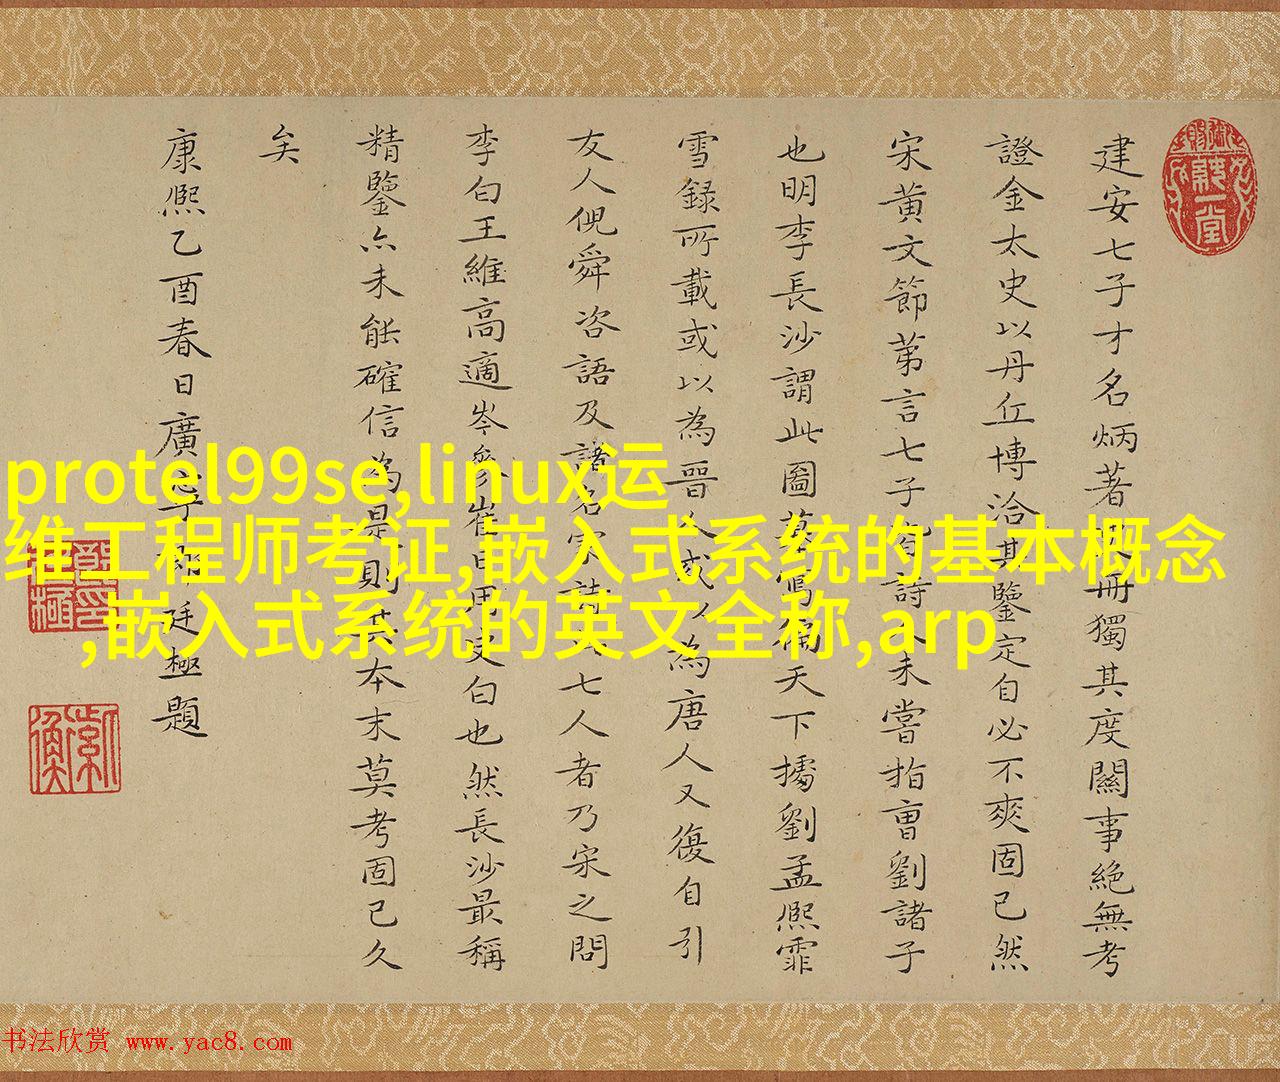 建安七子才名炳著冊獨其度關事絶無考
證金太史以丹丘博洽其鑒定自必不爽固已然
宋黄文節第言七子詩人未嘗指曹劉諸子
也明李長沙謂此圖摹寫徧天下據劉孟熙霏
雪録所載或以為晉人或以為唐人又復自引
友人倪舜咨語及諸名家詩七人者乃宋之問
李白王維高適岑參崔白也然長沙最稱
精鑒亦未能確信為是則其本末莫考固已久
矣
康熙乙酉春日廣子郎廷極題
protel99se,linux运
维工程师考证,嵌入式系统的基本概念
,嵌入式系统的英文全称,arp
书法欣赏 www.yac8.com